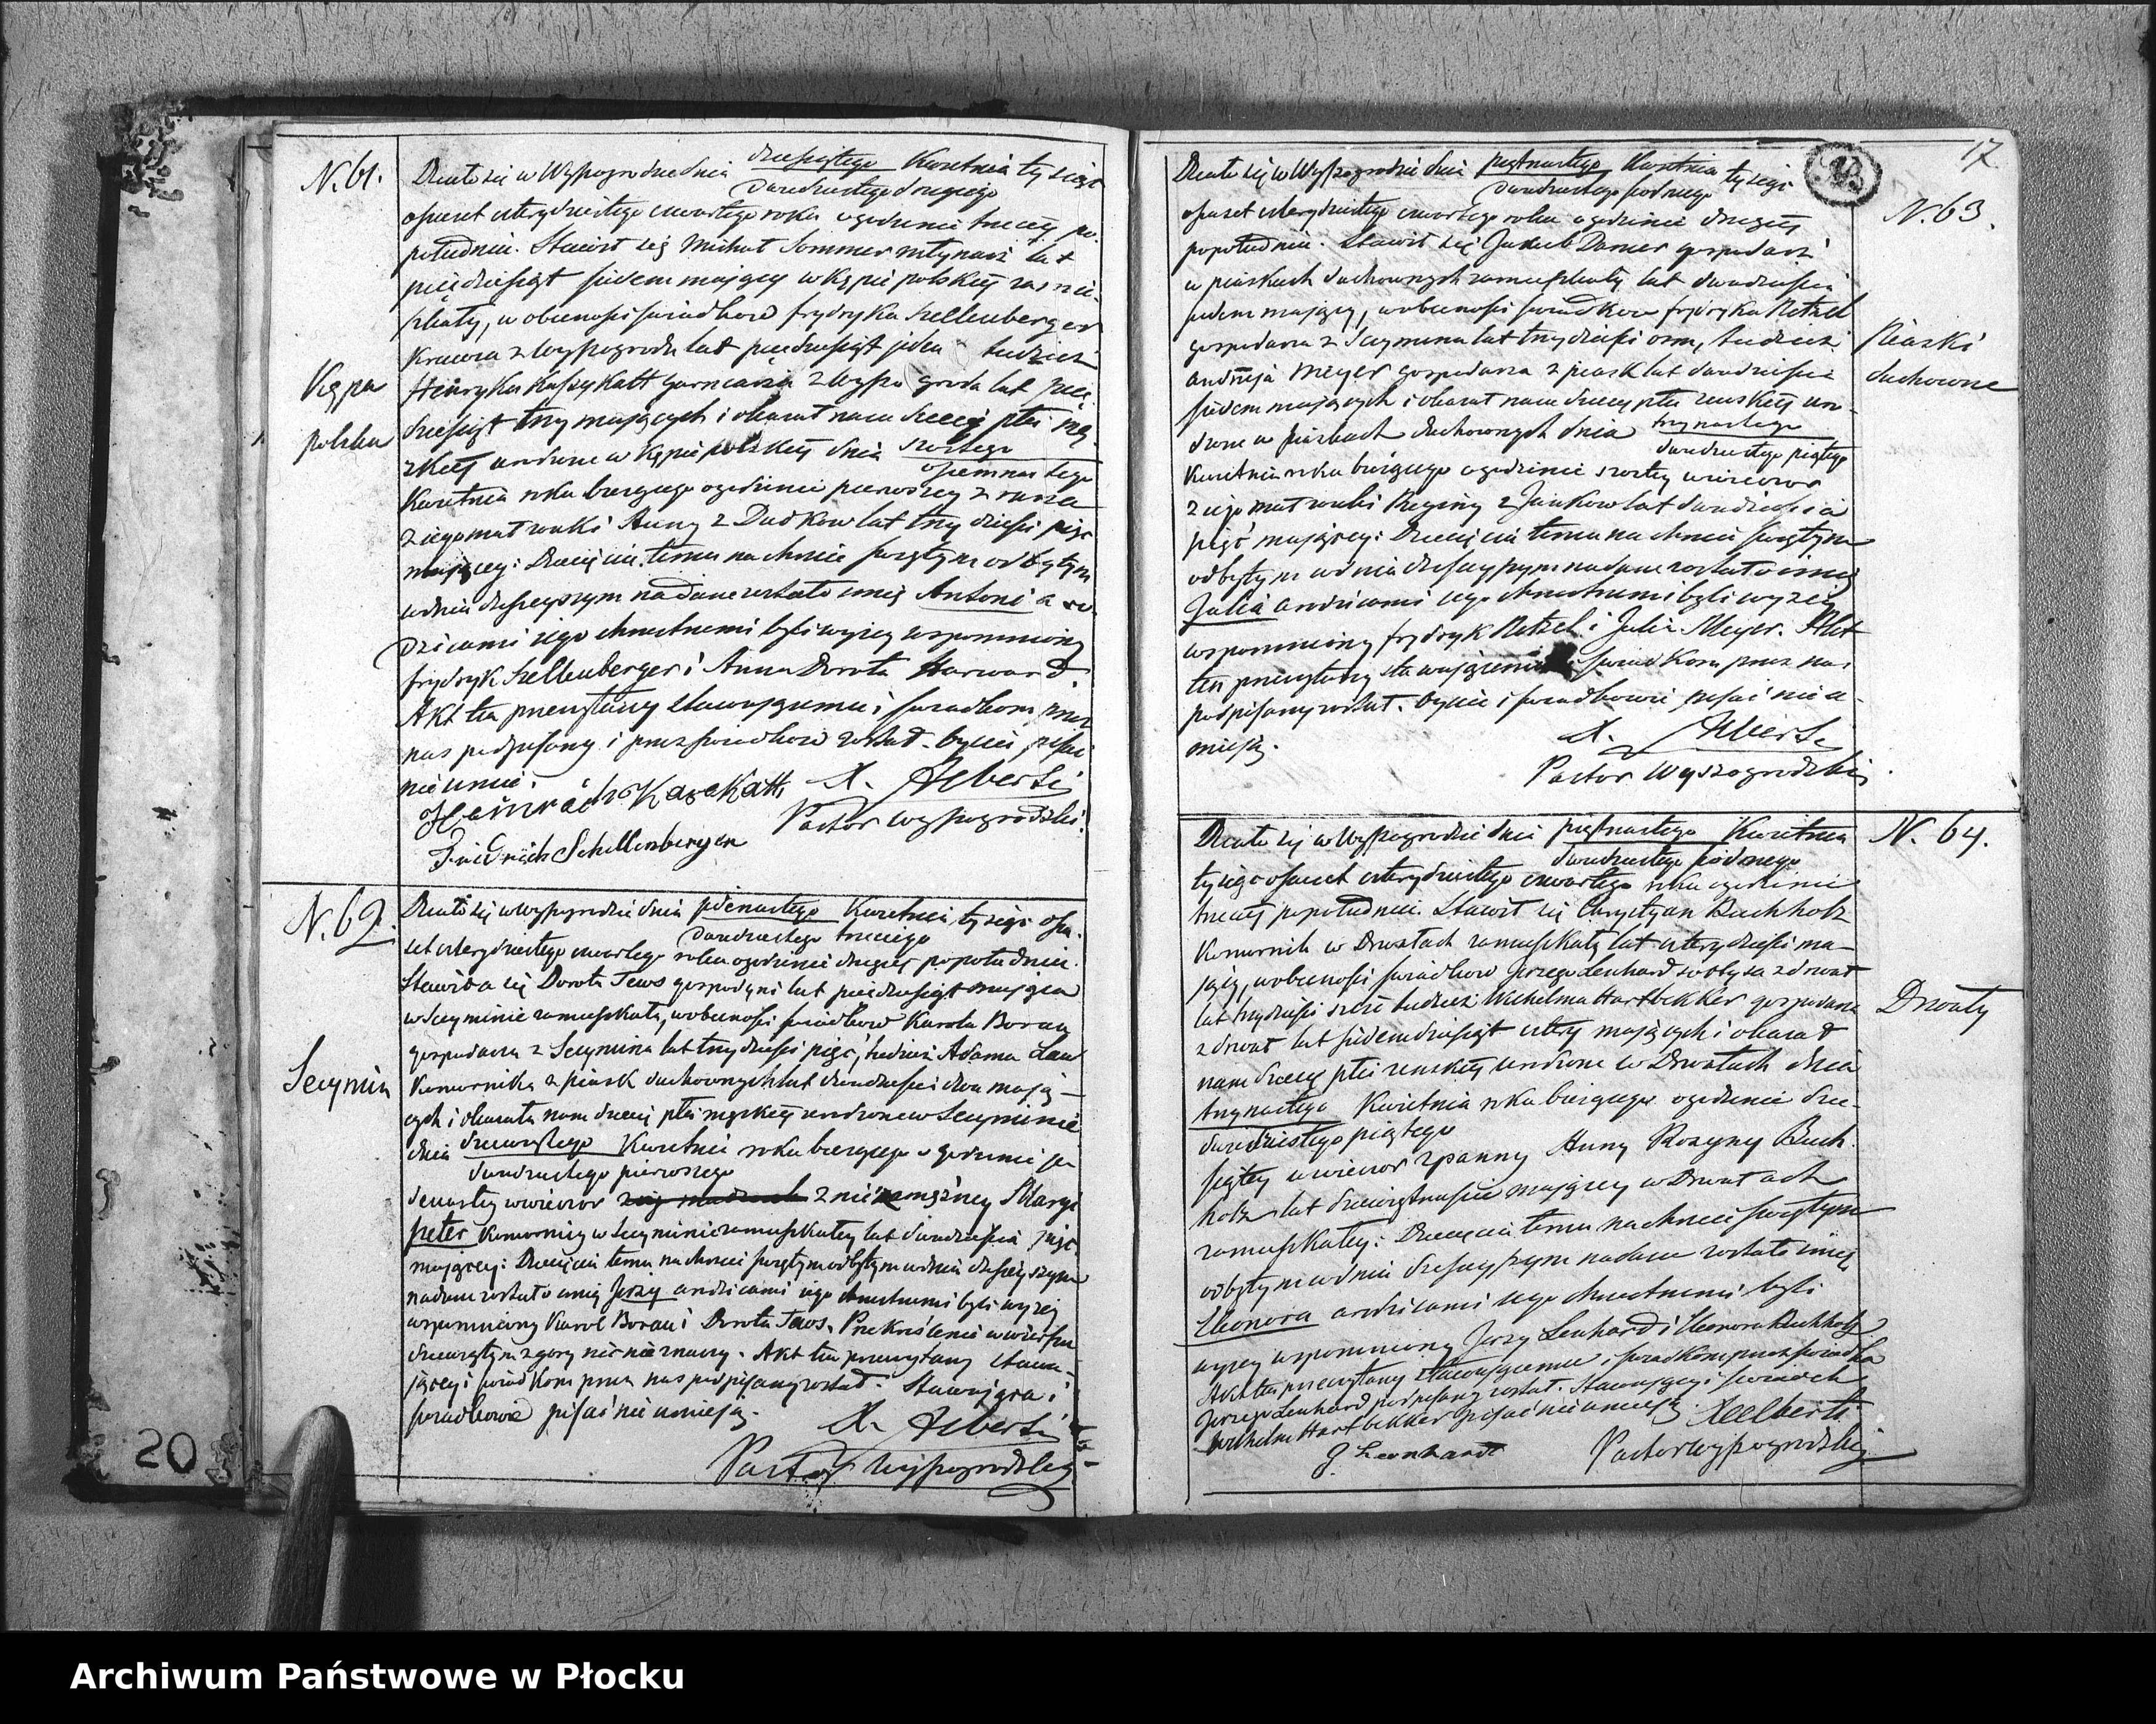 N. 61.
Kępa
polska
Działo się w Wyszogrodzie dnia dziesiątego Kwietnia tysiąc
dwudziestego drugiego
ośmset czterydziestego czwartego roku o godzinie trzeciej po
południu. Stawił się Michał Sommer młynarz lat
pięćdziesiąt siedem mający w Kępie polskiej zamie-
szkały, w obecności świadków frydryka Szellenberger
Krawca z Wyszogroda lat pięćdziesiąt jeden tudzież
Henryka Kaszykatt garncarza z Wyszogroda lat pięć
dziesiąt trzy mających i okazał nam dziecię płci mę-
zkiej urodzone w Kępie polskiej dnia szóstego
osiemnastego
Kwietnia roku bieżącego o godzinie pierwszej z rana
z jego małżonki Anny z Dudków lat trzydzieści pięć
mającej: Dziecięciu temu na chrzcie świętym odbytym
w dniu dzisiejszym nadane zostało imię Antoni a ro-
dzicami jego chrzestnemi byli wyżej wspomniony
frydryk Szellenberger i Anna Dorota Harward.
Akt ten przeczytany stawającemu i świadkom przez
nas podpisany i przez świadków został. Ojciec pisać
nie umie.
X. Alberti
Pastor Wyszogrodzki.
Friedrich Schellenberger
N. 62.
Secymin
Działo się w Wyszogrodzie dnia jedenastego Kwietnia tysiąc ośm-
dwudziestego trzeciego
set czterydziestego czwartego roku o godzinie drugiej popołudniu.
Stawiła się Dorota Tews gospodyni lat pięćdziesiąt mająca
w Secyminie zamieszkała, w obecności świadków Karola Borau
gospodarza z Secymina lat trzydzieści pięć, tudzież Adama Lau
Komornika z piask duchownych lat dwadzieścia dwa mają-
cych i okazała nam dziecię płci męzkiej urodzone w Secyminie
dnia dziewiątego Kwietnia roku bieżącego o godzinie je-
dwudziestego pierwszego
denastej wwieczór z niezamężnej Maryi
peter Komornicy w Secyminie zamieszkałej lat dwadzieścia pięć
mającej: Dziecięciu temu na chrzcie świętym odbytym w dniu dzisiejszym
nadane zostało imię Jerzy a rodzicami jego chrzestnemi byli wyżej
wspomniony Karol Borau i Dorota Tews. Przekreślenie w wierszu
dziewiątym z góry nic nie znaczy. Akt ten przeczytany stawa-
jącej i świadkom przez nas podpisany został. Stawająca i
świadkowie pisać nie umieją.
X. Alberti
Pastor Wyszogrodzki
17
N. 63.
Piaski
duchowne
Działo się w Wyszogrodzie dnia piętnastego Kwietnia tysiąc
dwudziestego siódmego
ośmset czterydziestego czwartego roku o godzinie drugiej
popołudniu. Stawił się Jakub Damer gospodarz
w piaskach duchownych zamieszkały lat dwadzieścia
siedem mający, w obecności świadków frydryka Netzel
gospodarza z Secymina lat trzydzieści ośm, tudzież
andrzeja Meyer gospodarza z piask lat dwadzieścia
siedem mających i okazał nam dziecię płci żenskiej uro-
dzone w piaskach duchownych dnia trzynastego
dwudziestego piątego
Kwietnia roku bieżącego o godzinie szóstej wwieczór
z jego małżonki Reginy z Janków lat dwadzieścia
pięć mającej: Dziecięciu temu na chrzcie świętym
odbytym w dniu dzisiejszym nadane zostało imię
Julia a rodzicami jego chrzestnemi byli wyżej
wspomniony frydryk Netzel i Julia Meyer. Akt
ten przeczytany stawającemu i świadkom przez nas
podpisany został. Ojciec i świadkowie pisać nie u-
mieją.
X. Alberti
Pastor Wyszogrodzki
N. 64.
Drwały
Działo się w Wyszogrodzie dnia piętnastego Kwietnia
dwudziestego siódmego
tysiąc ośmset czterydziestego czwartego roku o godzinie
trzeciej popołudniu. Stawił się Chrystyan Buchholz
Komornik w Drwałach zamieszkały lat czterydzieści ma-
jący, w obecności świadków Jerzego Lenhard sołtysa z drwał
lat trzydzieści sześć tudzież Wilhelma Hartbekker gospodarza
z drwał lat siedemdziesiąt cztery mających i okazał
nam dziecię płci żenskiej urodzone w Drwałach dnia
trzynastego Kwietnia roku bieżącego o godzinie dzie-
dwudziestego piątego
siątej wwieczór z panny Anny Rozyny Buch-
holz lat dziewiętnaście mającej w Drwałach
zamieszkałej: Dziecięciu temu na chrzcie świętym
odbytym w dniu dzisiejszym nadane zostało imię
Eleonora a rodzicami jego chrzestnemi byli
wyżej wspomniony Jerzy Lenhard i Eleonora Buchholz.
Akt ten przeczytany stawającemu i świadkom przez świadka
Jerzego Lenhard podpisany został. Stawający i świadek
Wilhelm Hartbekker pisać nie umieją. X. Alberti
G Leonhardt Pastor Wyszogrodzki
20
Archiwum Państwowe w Płocku